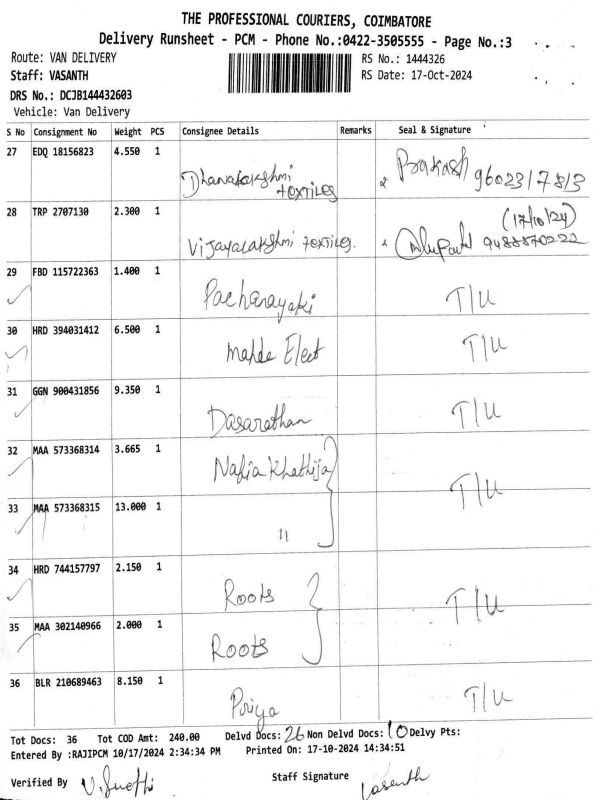 THE PROFESSIONAL COURIERS, COIMBATORE
Delivery Runsheet - PCM - Phone No.:0422-3505555 - Page No.:3
Route: VAN DELIVERY RS No.: 1444326
Staff: VASANTH RS Date: 17-Oct-2024
DRS No.: DCJB144432603
Vehicle: Van Delivery
S No Consignment No Weight PCS Consignee Details Remarks Seal & Signature
27 EDQ 18156823 4.550 1 Dhanalakshmi textiles Prakash 9602317813
28 TRP 2707130 2.300 1 Vijayalakshmi textiles. (17/10/24) 9488870222
29 FBD 115722363 1.400 1 Pachanayaki T/U
30 HRD 394031412 6.500 1 Mahde Elect T/U
31 GGN 900431856 9.350 1 Dasarathan T/U
32 MAA 573368314 3.665 1 Nafia Khathija T/U
33 MAA 573368315 13.000 1 "
34 HRD 744157797 2.150 1 Roots T/U
35 MAA 302140966 2.000 1 Roots
36 BLR 210689463 8.150 1 Priya T/U
Tot Docs: 36 Tot COD Amt: 240.00 Delvd Docs: 26 Non Delvd Docs: 10 Delvy Pts:
Entered By :RAJIPCM 10/17/2024 2:34:34 PM Printed On: 17-10-2024 14:34:51
Verified By Staff Signature Vasanth